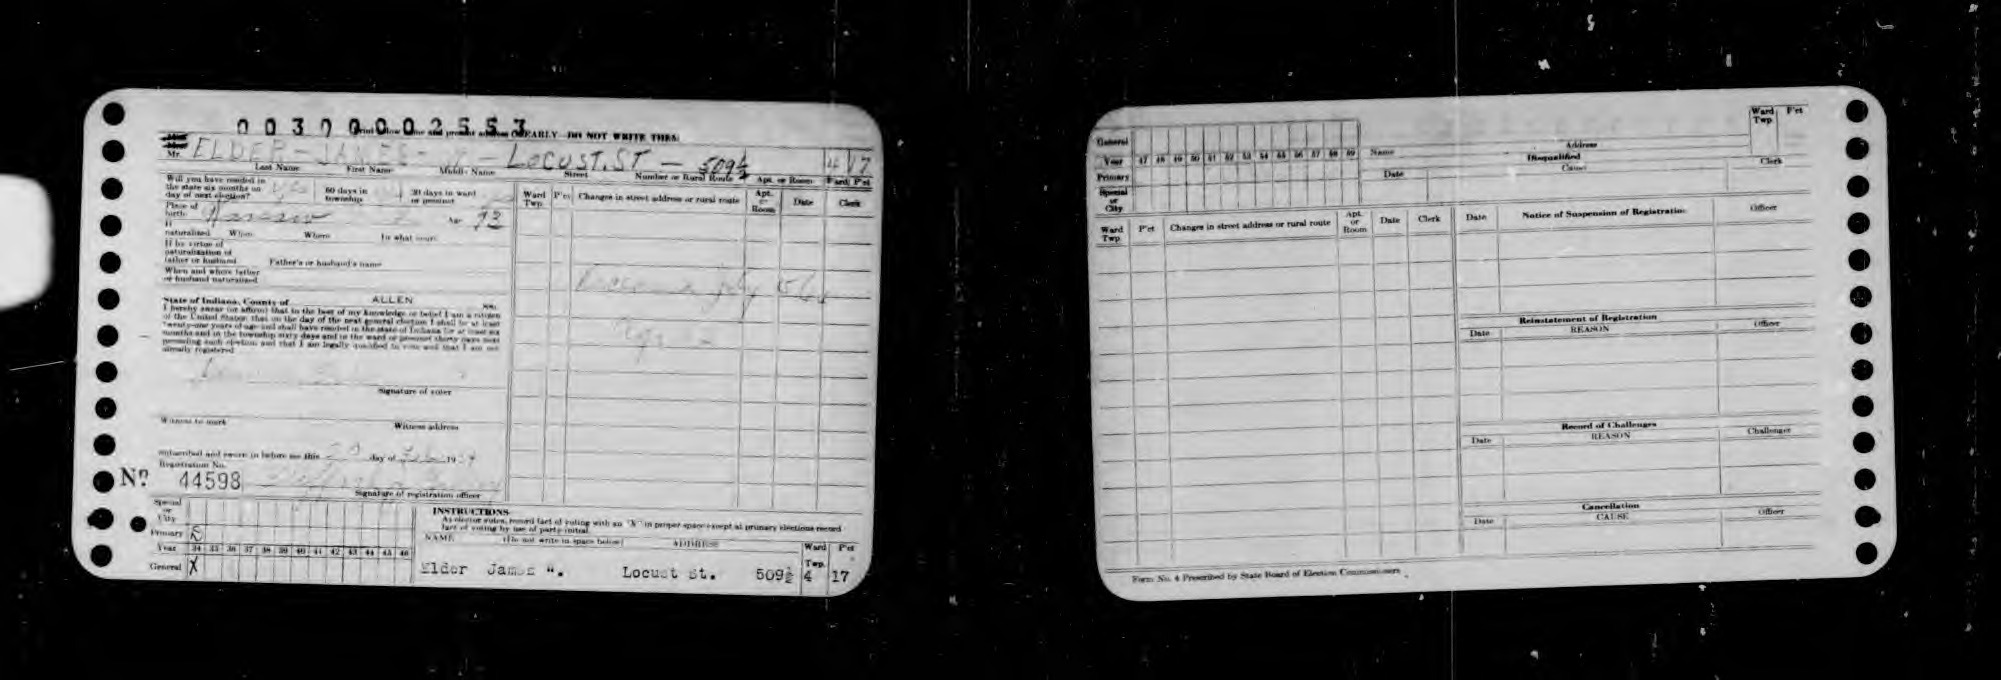 00300002553
CLEARLY DO NOT WRITE THIS
Mr. ELDER - JAMES - - LOCUST. ST - 509½ 4 17
Last Name First Name Middle Name Street Number or Rural Route Apt. or Room Ward P'ct
Will you have resided in
the state six months on
day of next election? yes 60 days in
township 30 days in ward
or precinct
Place of
birth Age 73
If
naturalized When Where In what court
If by virtue of
naturalization of
father or husband Father's or husband's name
When and where father
or husband naturalized
State of Indiana, County of ALLEN ss.
I hereby swear (or affirm) that to the best of my knowledge or belief I am a citizen
of the United States; that on the day of the next general election I shall be at least
twenty-one years of age and shall have resided in the state of Indiana for at least six
months and in the township sixty days and in the ward or precinct thirty days next
preceding such election and that I am legally qualified to vote and that I am not
already registered
Signature of voter
Witness to mark Witness address
Subscribed and sworn to before me this day of 19
Registration No.
Nº 44598
Signature of registration officer
Ward
Twp. P'ct Changes in street address or rural route Apt.
or
Room Date Clerk
Special
or
City
Primary
Year 34 35 36 37 38 39 40 41 42 43 44 45 46
General X
INSTRUCTIONS
As elector votes, record fact of voting with an "X" in proper space except at primary elections record
fact of voting by use of party initial.
NAME (Do not write in space below) ADDRESS Ward
Twp. P'ct
Elder James Locust st. 509½ 4 17
General
Year 47 48 49 50 51 52 53 54 55 56 57 58 59
Primary
Special
or
City
Name Address Ward
Twp. P'ct
Disqualified
Date Cause Clerk
Ward
Twp. P'ct Changes in street address or rural route Apt.
or
Room Date Clerk
Date Notice of Suspension of Registration Officer
Reinstatement of Registration
Date REASON Officer
Record of Challenges
Date REASON Challenger
Cancellation
Date CAUSE Officer
Form No. 4 Prescribed by State Board of Election Commissioners